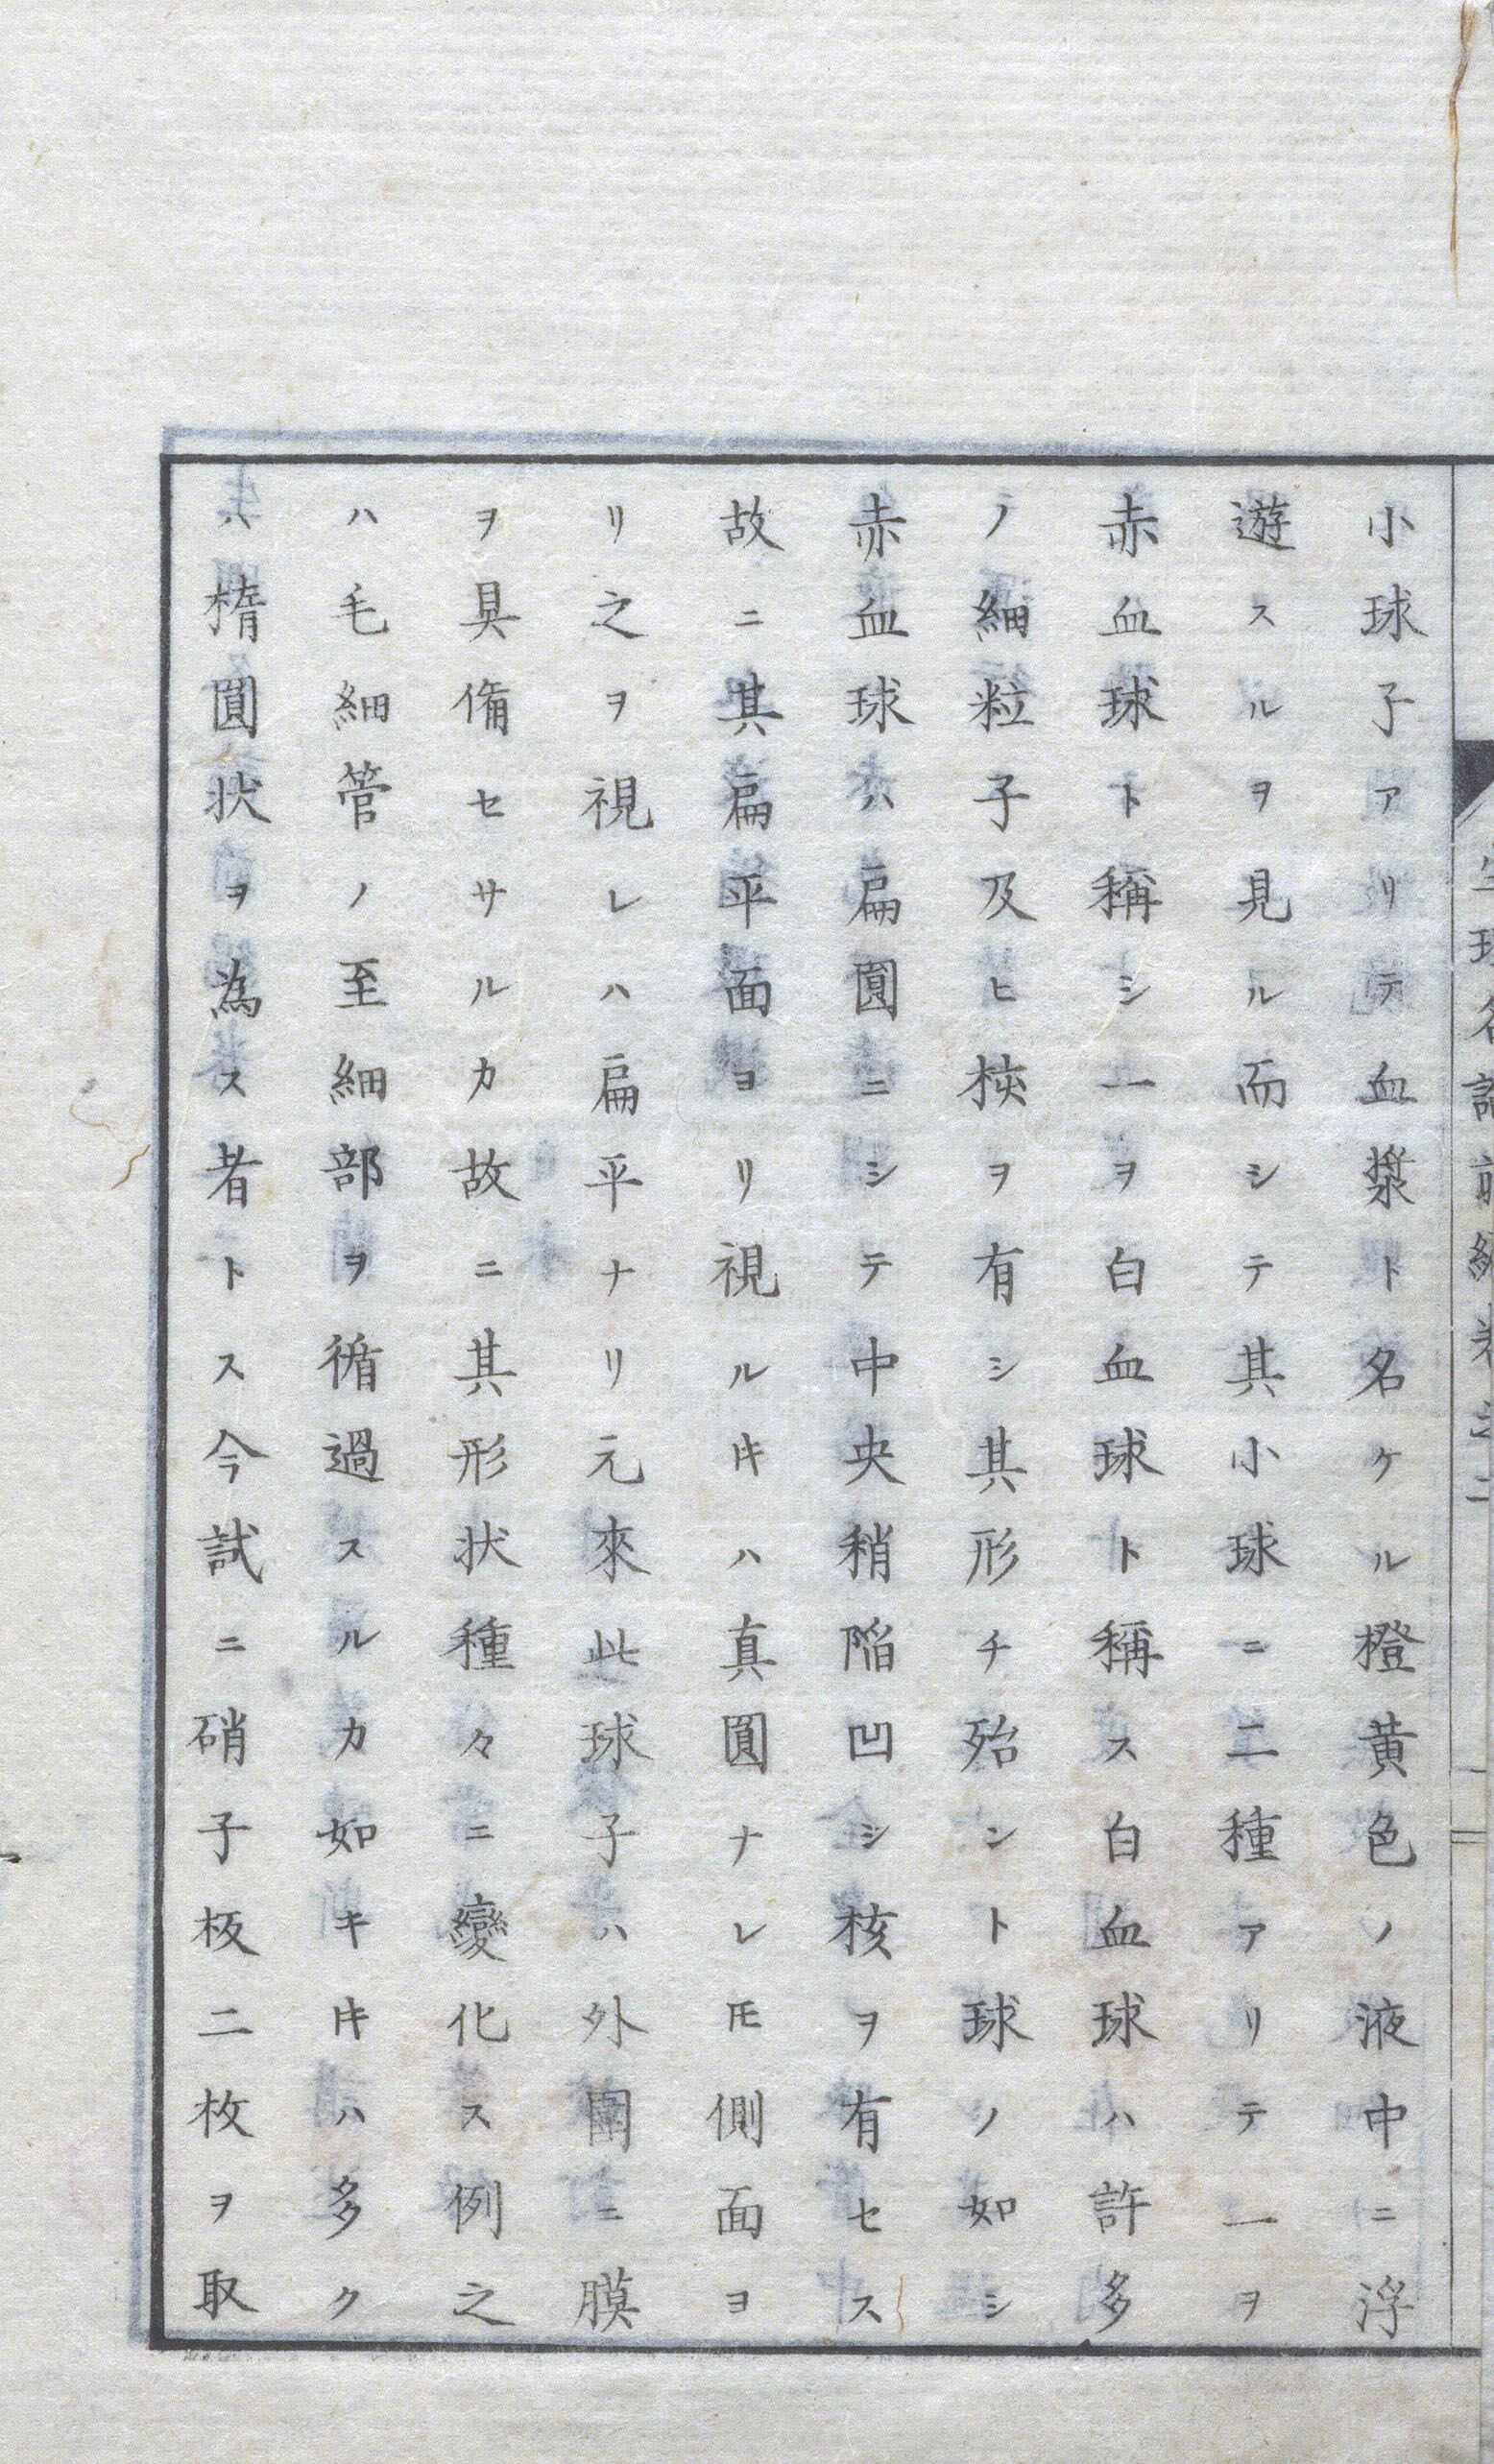 小球子アリテ血漿ト名ケル橙黄色ノ液中ニ浮
遊スルヲ見ル而シテ其小球ニ二種アリテ一ヲ
赤血球ト稱シ一ヲ白血球ト稱ス白血球ハ許多
ノ細粒子及ヒ核ヲ有シ其形チ殆ント球ノ如シ
赤血球ハ扁圓ニシテ中央稍陥凹シ核ヲ有セス
故ニ其扁平面ヨリ視ルキハ真圓ナレ𪜈側面ヨ
リ之ヲ視レハ扁平ナリ元來此球子ハ外圍ニ膜
ヲ具備セサルカ故ニ其形状種々ニ變化ス例之
ハ毛細管ノ至細部ヲ循過スルカ如キキハ多ク
ハ楕圓状ヲ為ス者トス今試ニ硝子板二枚ヲ取